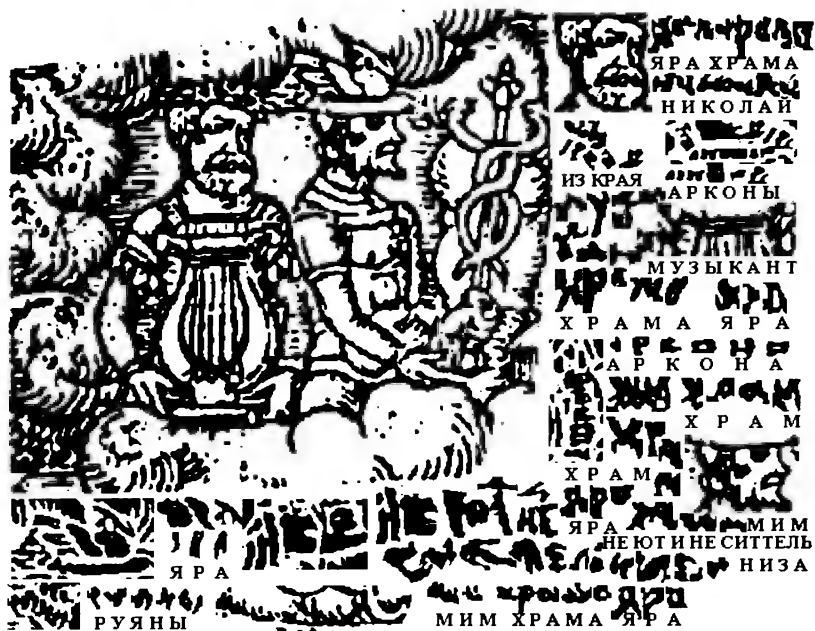 ЯРА ХРАМА
НИКОЛАЙ
ИЗ КРАЯ
АРКОНЫ
МУЗЫКАНТ
ХРАМА ЯРА
АРКОНА
ХРАМ
ХРАМ
ЯРА
МИМ
НЕ ЮТ И НЕ СИТТЕЛЬ
НИЗА
ЯРА
РУЯНЫ
МИМ ХРАМА ЯРА